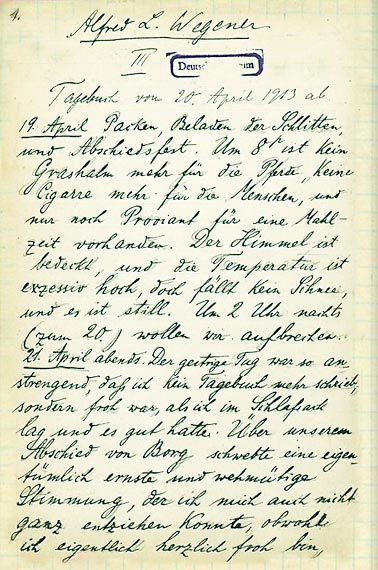 1.
Alfred L. Wegener
III
Deutsc um
Tagebuch vom 20. April 1913 ab
19. April Packen, Beladen der Schlitten,
und Abschiedsfest. Um 8h ist kein
Grashalm mehr für die Pferde, keine
Cigarre mehr für die Menschen, und
nur noch Proviant für eine Mahl-
zeit vorhanden. Der Himmel ist
bedeckt, und die Temperatur ist
exzessiv hoch, doch fällt kein Schnee,
und es ist still. Um 2 Uhr nachts
(zum 20) wollen wir aufbrechen.
21. April abends. Der gestrige Tag war so an-
strengend, daß ich kein Tagebuch mehr schrieb,
sondern froh war, als ich im Schlafsack
lag und es gut hatte. Über unserem
Abschied von Borg schwebte eine eigen-
tümlich ernste und wehmütige
Stimmung, der ich mich auch nicht
ganz entziehen konnte, obwohl
ich eigentlich herzlich froh bin,